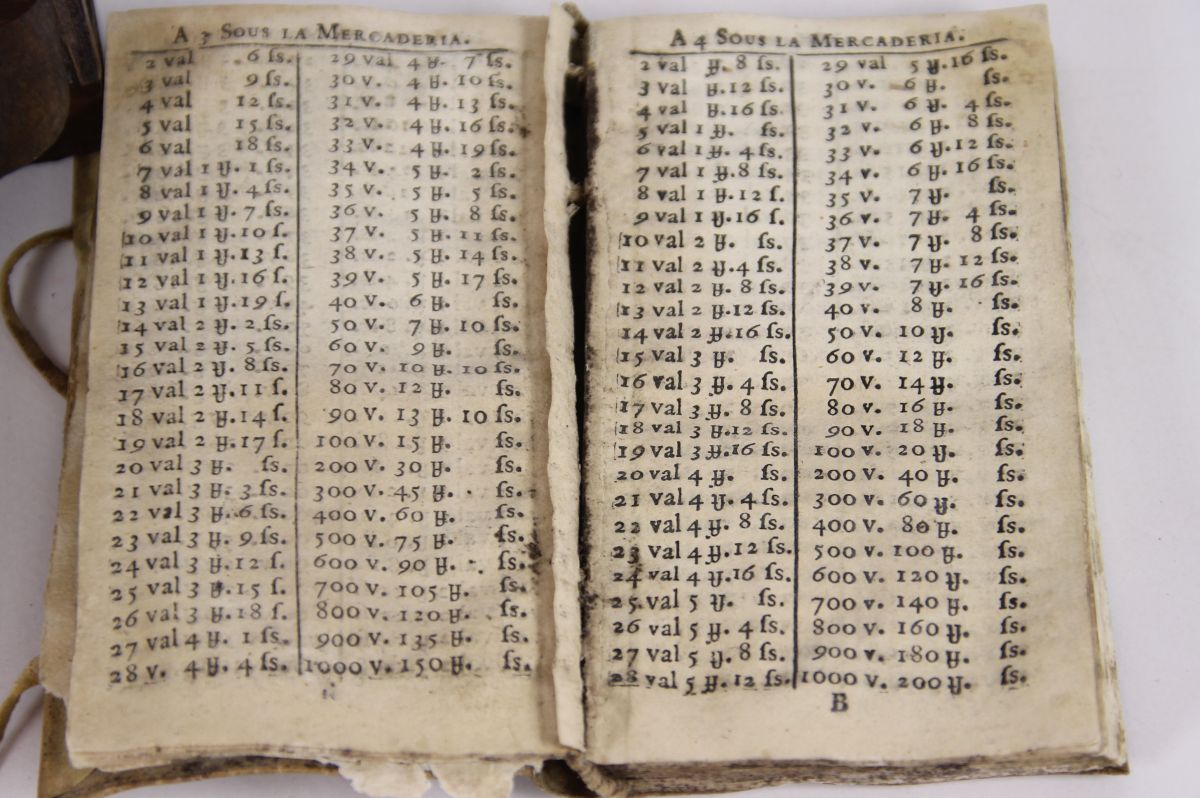 A 3 SOUS LA MERCADERIA.
2 val 6 ſs.
3 val 9 ſs.
4 val 12 ſs.
5 val 15 ſs.
6 val 18 ſs.
7 val 1 ₶. 1 ſs.
8 val 1 ₶. 4 ſs.
9 val 1 ₶. 7 ſs.
10 val 1 ₶. 10 ſ.
11 val 1 ₶. 13 ſ.
12 val 1 ₶. 16 ſ.
13 val 1 ₶. 19 ſ.
14 val 2 ₶. 2 ſs.
15 val 2 ₶. 5 ſs.
16 val 2 ₶. 8 ſs.
17 val 2 ₶. 11 ſ.
18 val 2 ₶. 14 ſ.
19 val 2 ₶. 17 ſ.
20 val 3 ₶. ſs.
21 val 3 ₶. 3 ſs.
22 val 3 ₶. 6 ſs.
23 val 3 ₶. 9 ſs.
24 val 3 ₶. 12 ſ.
25 val 3 ₶. 15 ſ.
26 val 3 ₶. 18 ſ.
27 val 4 ₶. 1 ſs.
28 v. 4 ₶. 4 ſs.
29 val 4 ₶. 7 ſs.
30 v. 4 ₶. 10 ſs.
31 v. 4 ₶. 13 ſs.
32 v. 4 ₶. 16 ſs.
33 v. 4 ₶. 19 ſs.
34 v. 5 ₶. 2 ſs.
35 v. 5 ₶. 5 ſs.
36 v. 5 ₶. 8 ſs.
37 v. 5 ₶. 11 ſs.
38 v. 5 ₶. 14 ſs.
39 v. 5 ₶. 17 ſs.
40 v. 6 ₶. ſs.
50 v. 7 ₶. 10 ſs.
60 v. 9 ₶. ſs.
70 v. 10 ₶. 10 ſs.
80 v. 12 ₶. ſs.
90 v. 13 ₶. 10 ſs.
100 v. 15 ₶. ſs.
200 v. 30 ₶. ſs.
300 v. 45 ₶. ſs.
400 v. 60 ₶. ſs.
500 v. 75 ₶. ſs.
600 v. 90 ₶. ſs.
700 v. 105 ₶. ſs.
800 v. 120 ₶. ſs.
900 v. 135 ₶. ſs.
1000 v. 150 ₶. ſs.
A 4 SOUS LA MERCADERIA.
2 val ₶. 8 ſs.
3 val ₶. 12 ſs.
4 val ₶. 16 ſs.
5 val 1 ₶. ſs.
6 val 1 ₶. 4 ſs.
7 val 1 ₶. 8 ſs.
8 val 1 ₶. 12 ſ.
9 val 1 ₶. 16 ſ.
10 val 2 ₶. ſs.
11 val 2 ₶. 4 ſs.
12 val 2 ₶. 8 ſs.
13 val 2 ₶. 12 ſs.
14 val 2 ₶. 16 ſs.
15 val 3 ₶. ſs.
16 val 3 ₶. 4 ſs.
17 val 3 ₶. 8 ſs.
18 val 3 ₶. 12 ſs.
19 val 3 ₶. 16 ſs.
20 val 4 ₶. ſs.
21 val 4 ₶. 4 ſs.
22 val 4 ₶. 8 ſs.
23 val 4 ₶. 12 ſs.
24 val 4 ₶. 16 ſs.
25 val 5 ₶. ſs.
26 val 5 ₶. 4 ſs.
27 val 5 ₶. 8 ſs.
28 val 5 ₶. 12 ſs.
29 val 5 ₶. 16 ſs.
30 v. 6 ₶. ſs.
31 v. 6 ₶. 4 ſs.
32 v. 6 ₶. 8 ſs.
33 v. 6 ₶. 12 ſs.
34 v. 6 ₶. 16 ſs.
35 v. 7 ₶. ſs.
36 v. 7 ₶. 4 ſs.
37 v. 7 ₶. 8 ſs.
38 v. 7 ₶. 12 ſs.
39 v. 7 ₶. 16 ſs.
40 v. 8 ₶. ſs.
50 v. 10 ₶. ſs.
60 v. 12 ₶. ſs.
70 v. 14 ₶. ſs.
80 v. 16 ₶. ſs.
90 v. 18 ₶. ſs.
100 v. 20 ₶. ſs.
200 v. 40 ₶. ſs.
300 v. 60 ₶. ſs.
400 v. 80 ₶. ſs.
500 v. 100 ₶. ſs.
600 v. 120 ₶. ſs.
700 v. 140 ₶. ſs.
800 v. 160 ₶. ſs.
900 v. 180 ₶. ſs.
1000 v. 200 ₶. ſs.
B